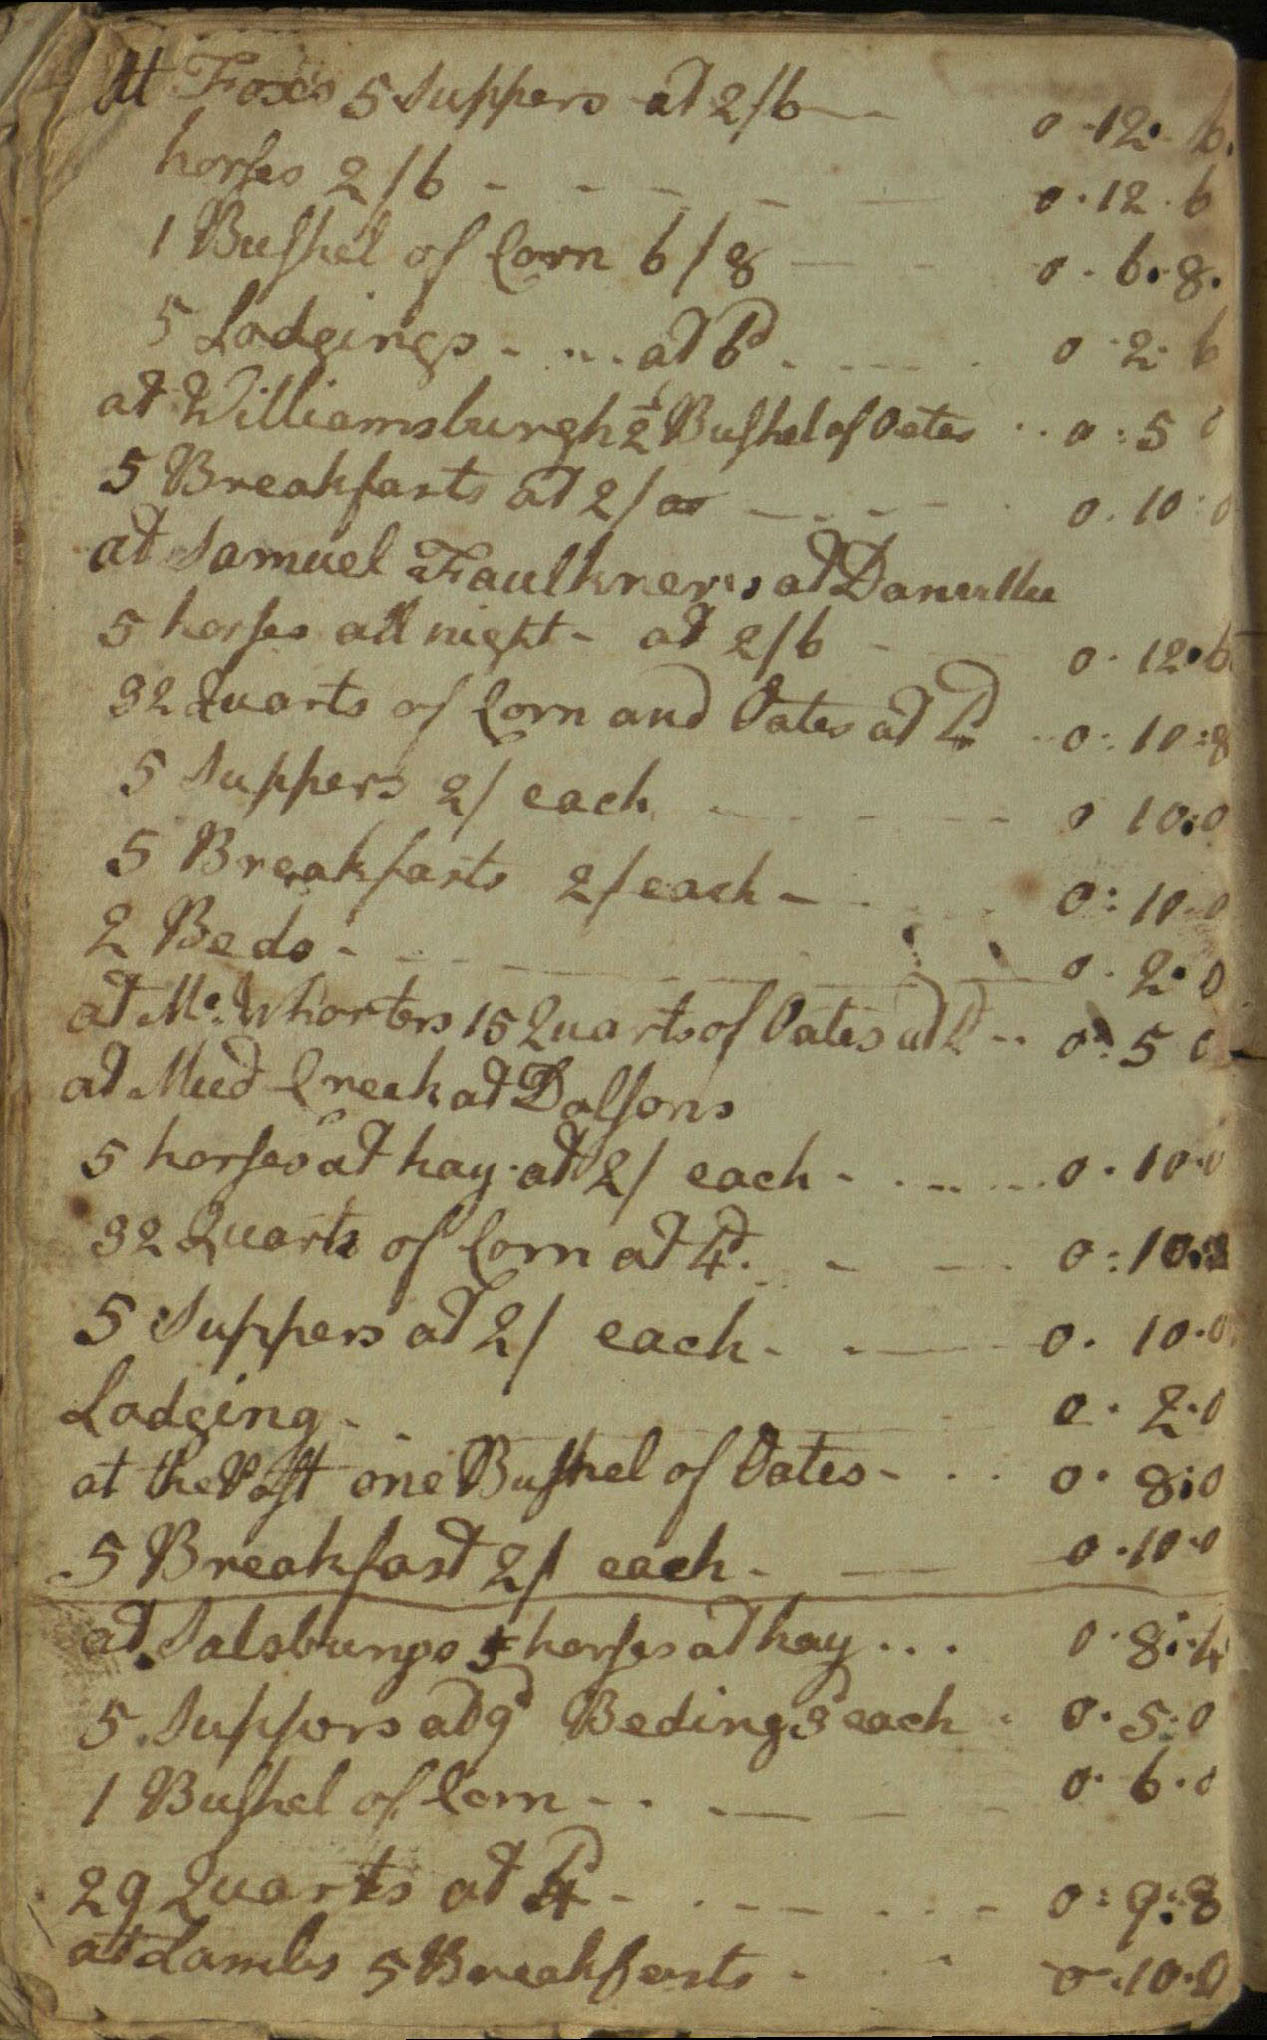 At Foxs 5 Suppers at 2/6 0 12 6
horses 2/6 0 12 6
1 Bushel of Corn 6/8 0 6 8
5 Lodgings at 6d 0 2 6
at Williamsburgh 1/2 Bushel of Oates 0 5 0
5 Breakfasts at 2/ 0 10 0
at Samuel Faulkners at Danville
5 horses all night at 2/6 0 12 6
32 Quarts of Corn and Oates at 4d 0 10 8
5 Suppers 2/ each 0 10 0
5 Breakfasts 2/ each 0 10 0
2 Beds 0 2 0
at Mc Whorters 15 Quarts of Oates at 4d 0 5 0
at Mud Creek at Dolsons
5 horses at hay at 2/ each 0 10 0
32 Quarts of Corn at 4d 0 10 8
5 Suppers at 2/ each 0 10 0
Lodging 0 2 0
at the Post one Bushel of Oates 0 8 0
5 Breakfast 2/ each 0 10 0
at Salsburys 5 horses at hay 0 8 4
5 Suppors at 9d Beding 3d each 0 5 0
1 Bushel of Corn 0 6 0
29 Quarts at 4d 0 9 8
at Lambs 5 Breakfasts 0 10 0